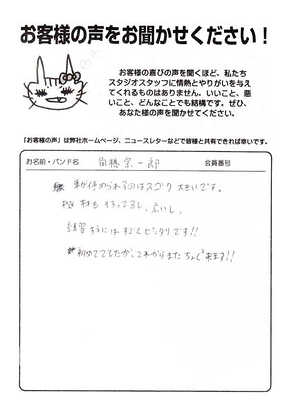 お客様の声をお聞かせください！
お客様の喜びの声を聞くほど、私たち
スタジオスタッフに情熱とやりがいを与え
てくれるものはありません。いいこと、悪
いこと、どんなことでも結構です。ぜひ、
あなた様の声を聞かせてください。
「お客様の声」は弊社ホームページ、ニュースレターなどで皆様と共有できれば幸いです。
お名前・バンド名 高橋宗一郎 会員番号
車が停められるのはスゴク大きいです。
機材も
練習するには すごくピッタリです!!
初めてでしたが、これからまた ちょくちょく来ます!!